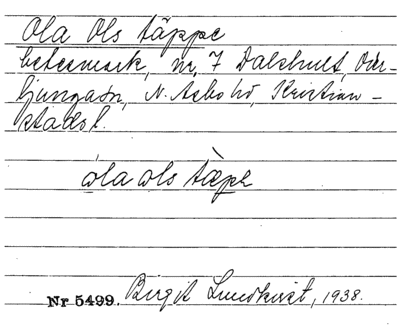 Ola Ols täppe
betesmark, nr, 7 Dalshult, Ör-
kjungasn, N. Åsbo hd, Kristian-
stads l.
ola ols tæpe
Nr 5499. Birgit Lundkvist, 1938.